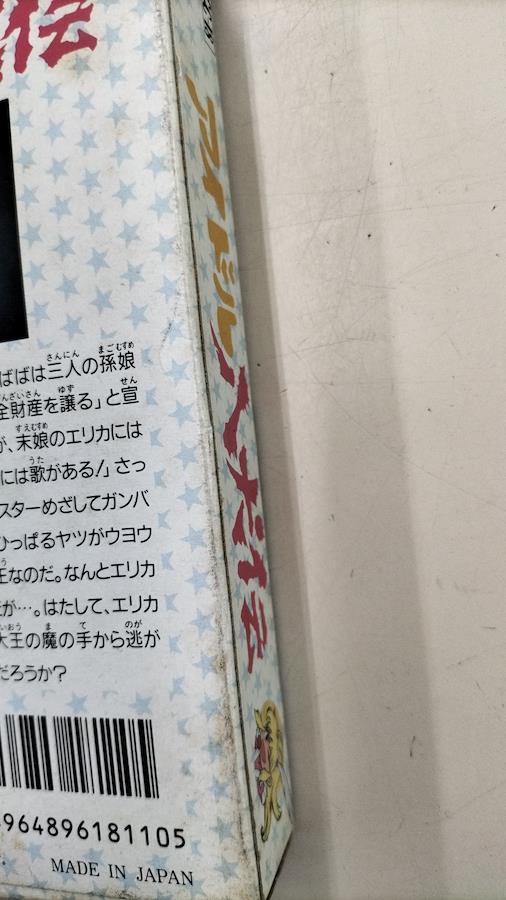 伝
ばばは三人の孫娘
全財産を譲る」と宣
が、末娘のエリカには
には歌がある!」さっ
スターめざしてガンバ
ひっぱるヤツがウヨウ
王なのだ。なんとエリカ
が…。はたして、エリカ
大王の魔の手から逃が
だろうか?
964896181105
MADE IN JAPAN
アイドル八犬伝